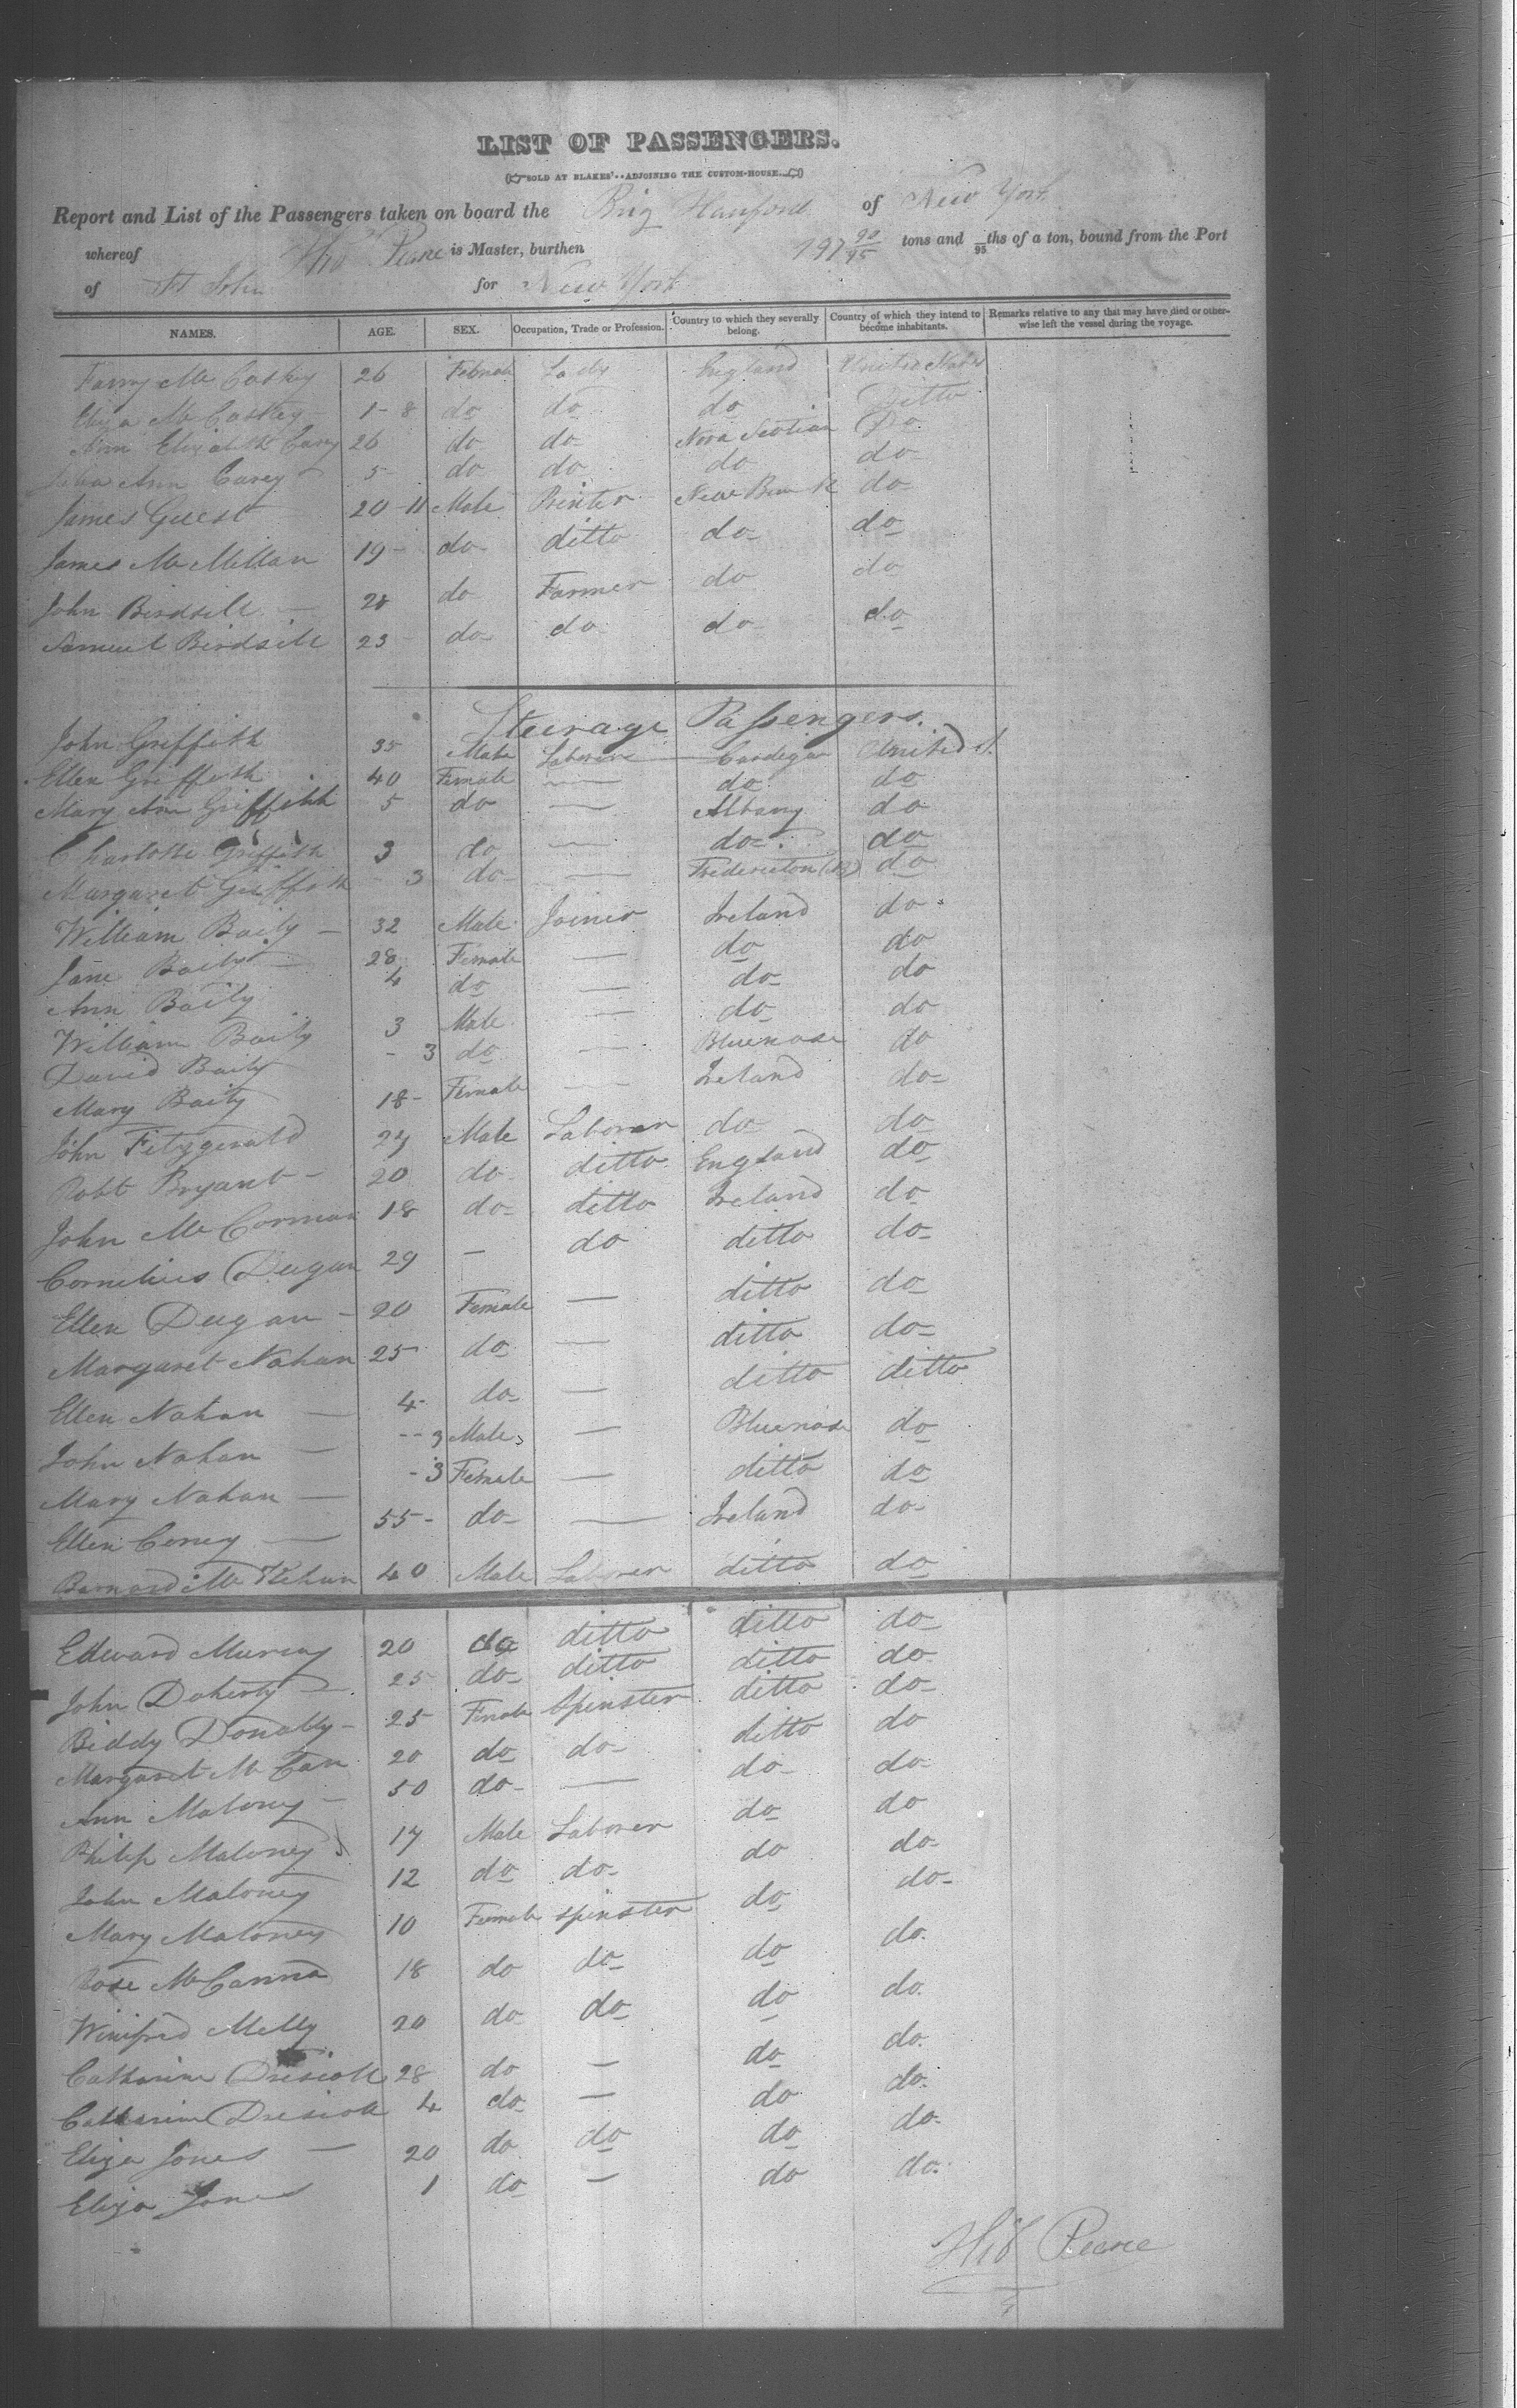 LIST OF PASSENGERS.
SOLD AT BLAKES'..ADJOINING THE CUSTOM-HOUSE.
Report and List of the Passengers taken on board the Brig Hanford of New York
whereof Pearce is Master, burthen 197 90/95 tons and /95ths of a ton, bound from the Port
of St John for New York
NAMES. AGE. SEX. Occupation, Trade or Profession. Country to which they severally belong. Country of which they intend to become inhabitants. Remarks relative to any that may have died or otherwise left the vessel during the voyage.
Fanny Mc Caskey 26 Female Lady England United States
Eliza Mc Caskey 1-8 do do do Ditto
Ann Elizabeth Carey 26 do do Nova Scotian Do
Ann Carey 5 do do do do
James Guest 20-11 Male Printer New Brunk do
James Mc Millan 19 do ditto do do
John Birdsill 28 do Farmer do do
Samuel Birdsill 23 do do do do
Steerage Passengers.
John Griffith 35 Male Laborer Cardegan United S.
Ellen Griffith 40 Female — do do
Mary Ann Griffith 5 do — Albany do
Charlotte Griffith 3 do — do do
Margaret Griffith - 3 do — Fredericton (NB) do
William Baily — 32 Male Joiner Ireland do
Jane Baily — 28 Female — do do
Ann Baily 4 do — do do
William Baily 3 Male — do do
David Baily - 3 do — Bluenose do
Mary Baily 18 Female — Ireland do
John Fitzgerald 27 Male Laborer do do
Robt Bryant 20 do ditto England do
John Mc Corman 18 do ditto Ireland do
Cornelius Dugan 29 — do ditto do
Ellen Dugan 20 Female — ditto do
Margaret Nahan 25 do — ditto do
Ellen Nahan — 4 do — ditto ditto
John Nahan — -- 3 Male — Bluenose do
Mary Nahan — - 3 Female — ditto do
Ellen Ceney — 55 do — Ireland do
Barnard Mc Kehan 40 Male Laborer ditto do
Edward Murray 20 do ditto ditto do
John Doherty — 25 do ditto ditto do
Biddy Donally 25 Female Spinster ditto do
Margaret Mc Can 20 do do ditto do
Ann Maloney — 50 do — do do
Philip Maloney 17 Male Laborer do do
John Maloney 12 do do do do
Mary Maloney 10 Female Spinster do do
Rose Mc Canna 18 do do do do.
Winifred Melly 20 do do do do.
Catharine Driscoll 28 do — do do.
Catharine Driscoll 4 do — do do.
Eliza Jones — 20 do do do do
Eliza Jones 1 do — do do.
Pearce